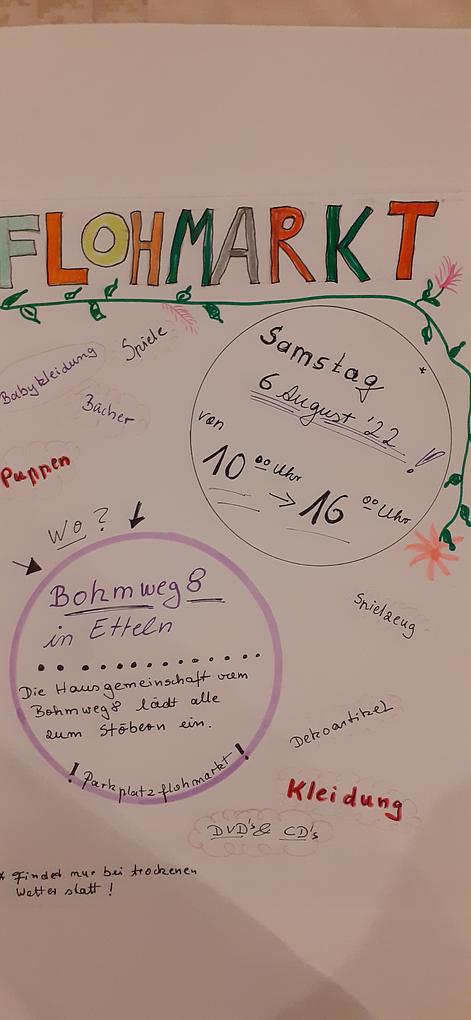 FLOHMARKT
Samstag *
6 August '22 !
von
10 00 Uhr
→ 16 00 Uhr
Spiele
Babykleidung
Bücher
Puppen
Wo?
Bohmweg 8
in Etteln
Die Hausgemeinschaft vom
Bohmweg 8 lädt alle
zum Stöbern ein.
! Parkplatzflohmarkt !
Spielzeug
Dekoartikel
Kleidung
DVD's & CD's
* Findet nur bei trockenen
Wetter statt !